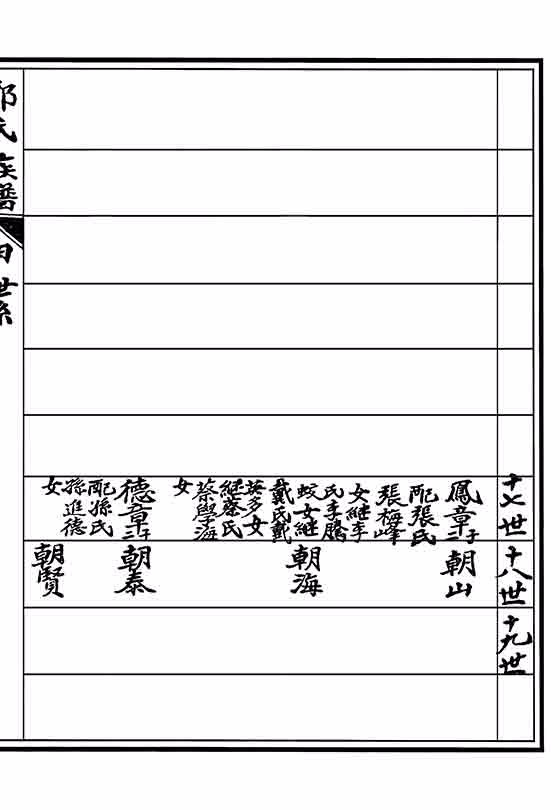 十七世
十八世
十九世
鳳章 二子
配張氏
張梅峰
女継李
氏李騰
蛟女継
戴氏戴
英多女
継蔡氏
蔡學海
女
朝山
朝海
德章 二子
配孫氏
孫進德
女
朝泰
朝賢
氏族譜
世系